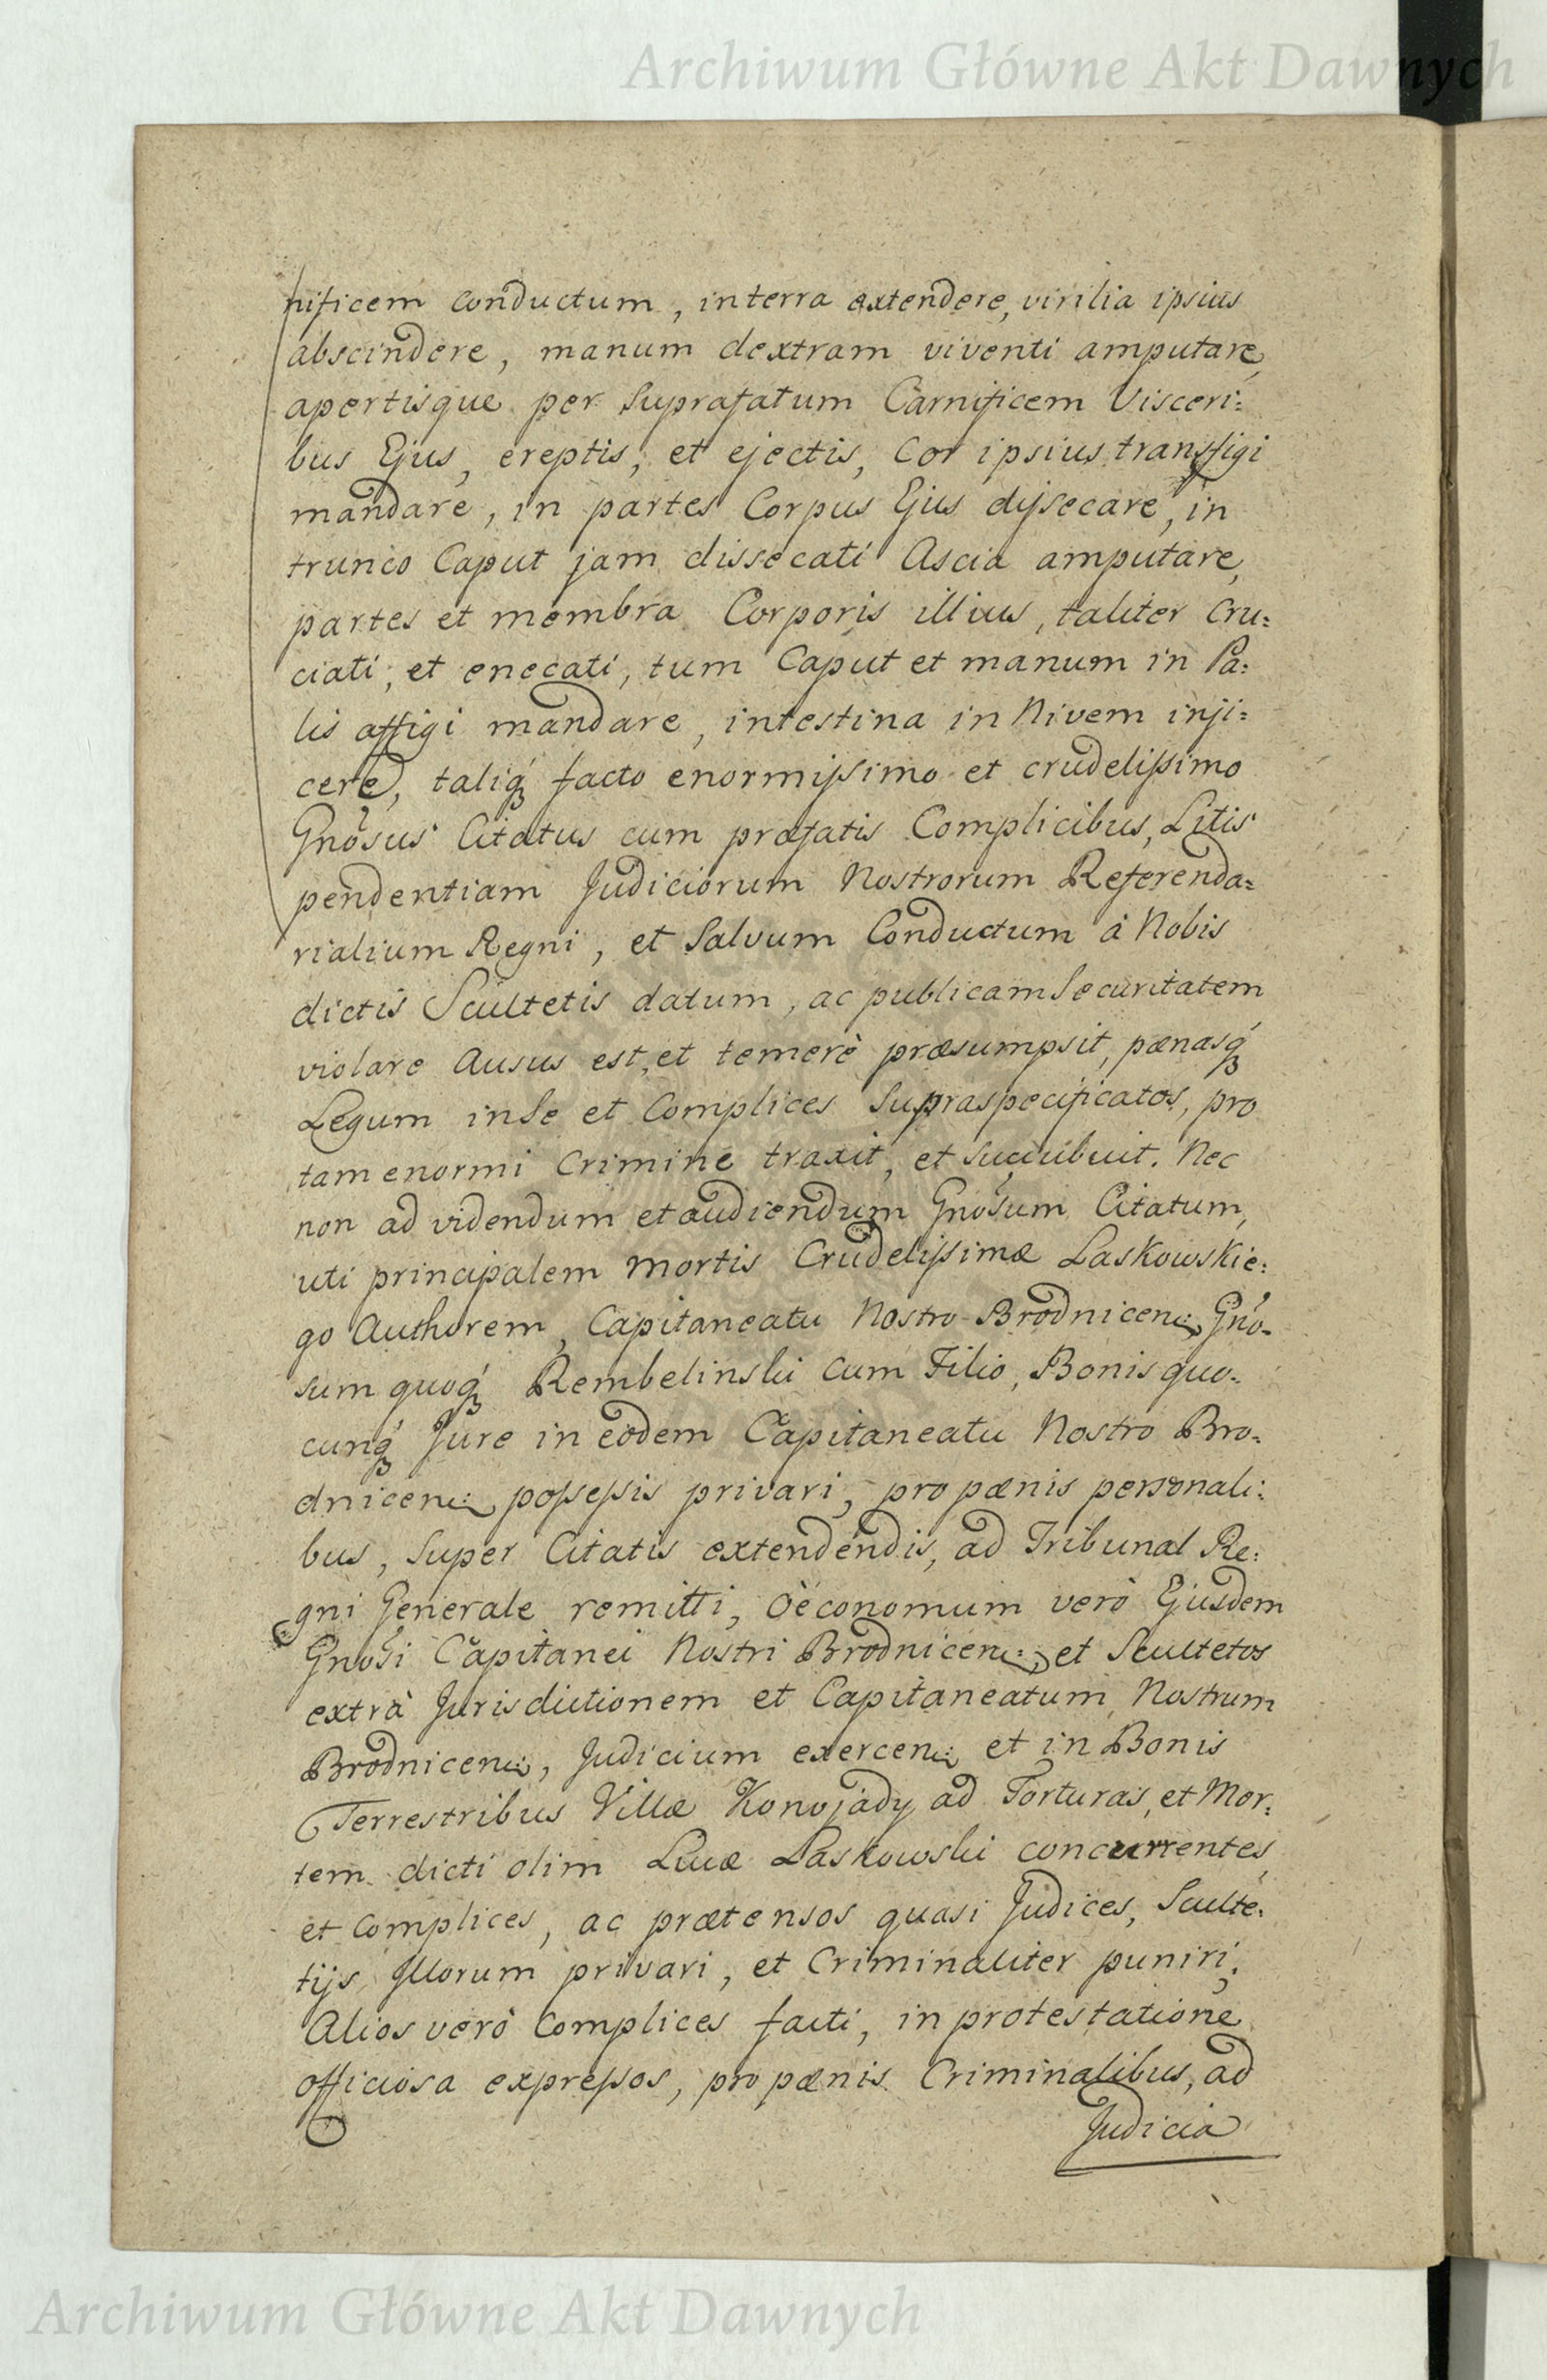 Archiwum Główne Akt Dawnych
nificem conductum, in terra extendere, virilia ipsius
abscindere, manum dextram viventi amputare,
apertisque per Suprafatum Carnificem Visceri=
bus Ejus, ereptis, et ejectis, Cor ipsius transfigi
mandare, in partes Corpus Ejus dissecare, in
trunco Caput jam dissecati Ascia amputare,
partes et membra Corporis illius, taliter cru=
ciati, et enecati, tum Caput et manum in Pa=
lis affigi mandare, intestina in Nivem inji=
cere, taliq́ facto enormissimo et crudelissimo
Gnosus Citatus cum præfatis Complicibus, Litis
pendentiam Judiciorum Nostrorum Referenda=
rialium Regni, et Salvum Conductum à Nobis
dictis Scultetis datum, ac publicam Securitatem
violare Ausus est, et temerè præsumpsit, pænasq́
Legum in Se et Complices Supraspecificatos, pro
tam enormi Crimine traxit, et Succubuit. Nec
non ad videndum et audiendum Gnosum Citatum,
uti principalem mortis Crudelissimæ Laskowskie=
go Authorem, Capitaneatu Nostro Brodnicen: Gno=
sum quoq́ Rembelinski cum Filio, Bonis quo=
cunq́ Jure in eodem Capitaneatu Nostro Bro=
dnicen: possessis privari, pro pænis personali=
bus, Super Citatis extendendis, ad Tribunal Re=
gni Generale remitti, Oeconomum verò Ejusdem
Gnosi Capitanei Nostri Brodnicen:, et Scultetos
extrà Jurisdictionem et Capitaneatum Nostrum
Brodnicen:, Judicium exercen: et in Bonis
Terrestribus Villæ Konojady ad Torturas, et Mor=
tem dicti olim Lucæ Laskowski concurrentes,
et Complices, ac prætensos quasi Judices, Sculte=
tijs Illorum privari, et Criminaliter puniri,
Alios verò Complices facti, in protestatione
officiosa expressos, pro pænis Criminalibus, ad
Judicia
Archiwum Główne Akt Dawnych